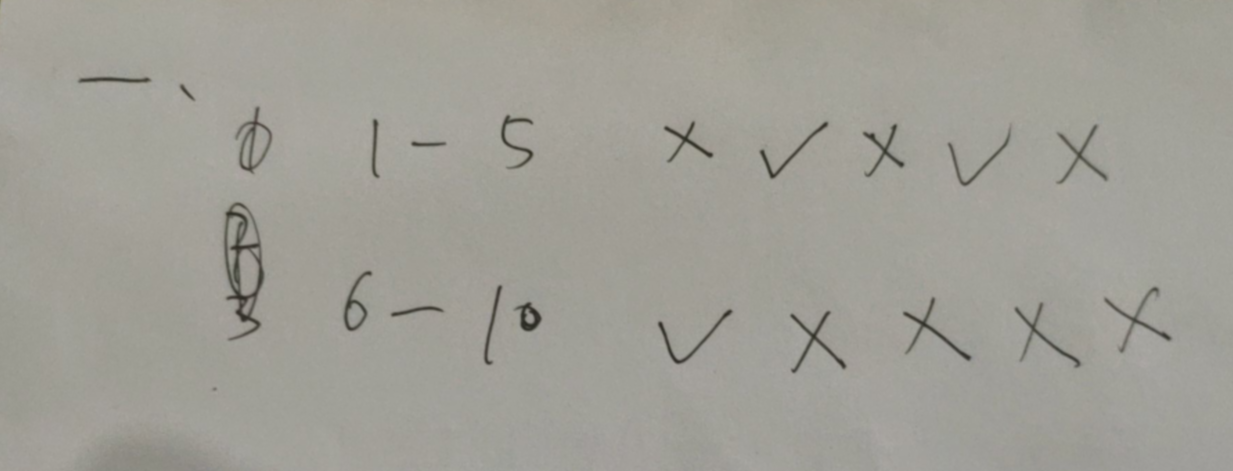 一、
1-5 ×✓×✓×
6-10 ✓××××